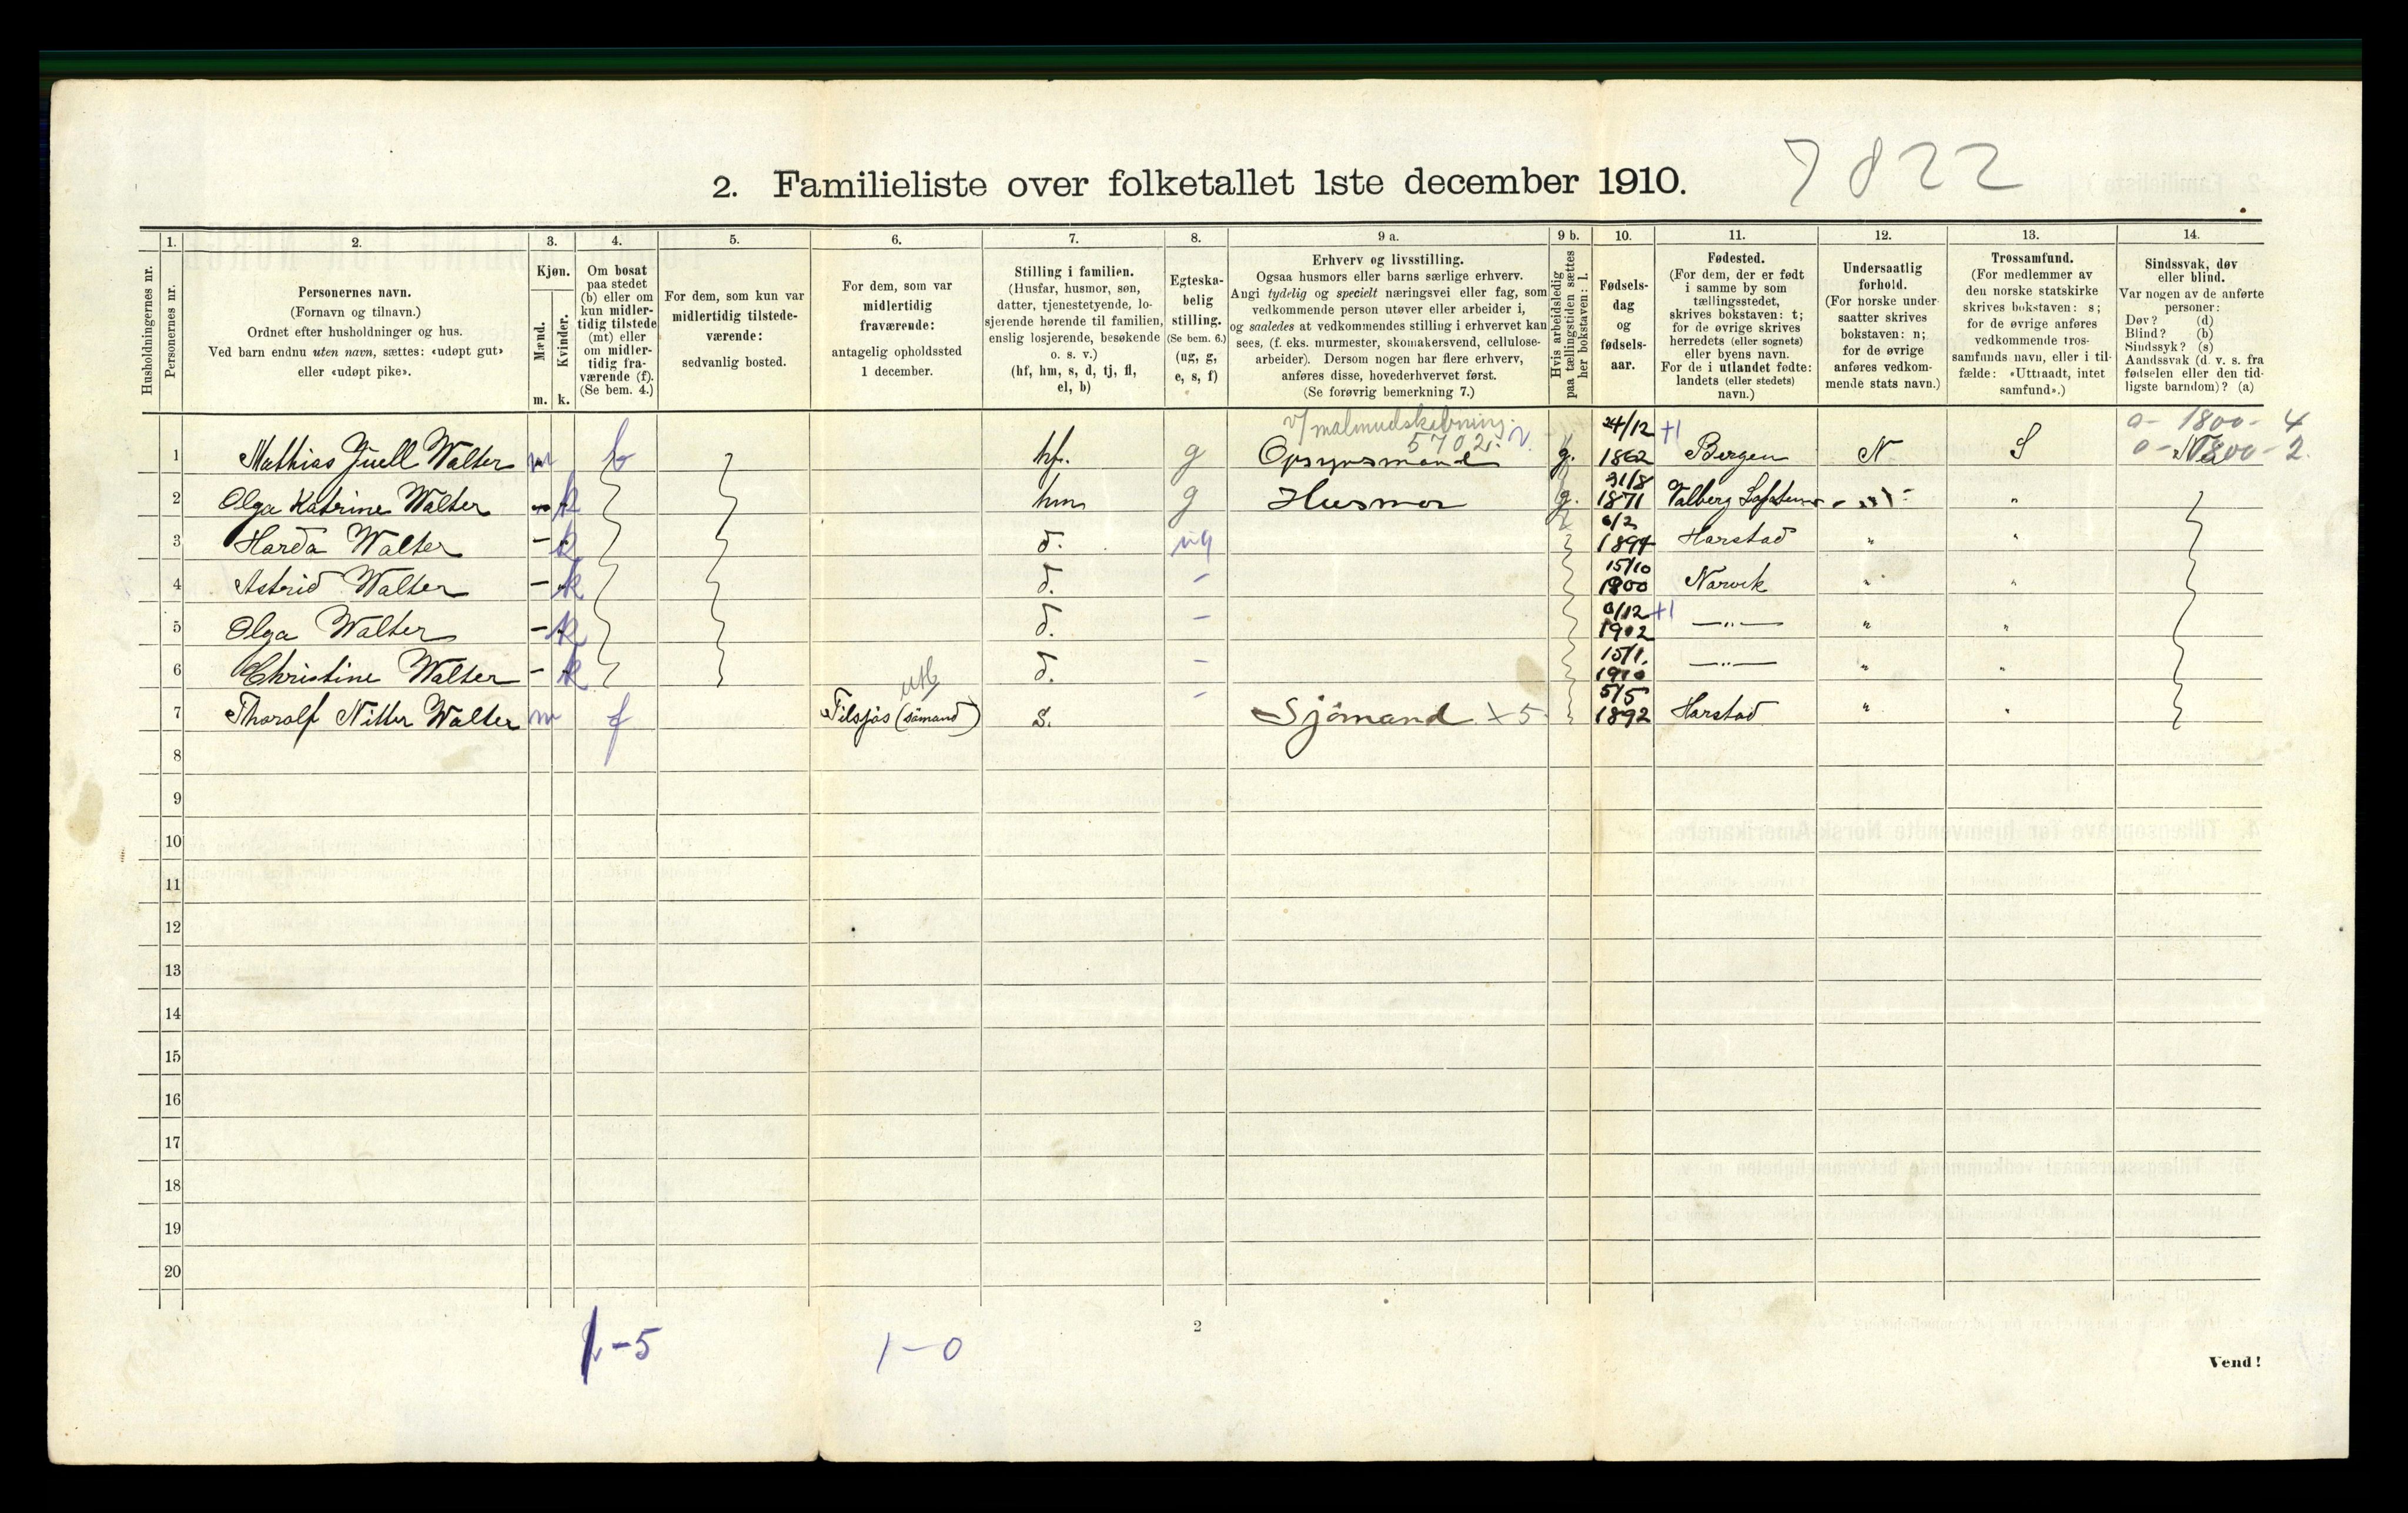 7822
2. Familieliste over folketallet 1ste december 1910.
Husholdningernes nr.
1. Personernes nr.
2. Personernes navn.
(Fornavn og tilnavn.)
Ordnet efter husholdninger og hus.
Ved barn endnu uten navn, sættes: «udøpt gut»
eller «udøpt pike».
3. Kjøn.
Mænd. m.
Kvinder. k.
4. Om bosat
paa stedet
(b) eller om
kun midler-
tidig tilstede
(mt) eller
om midler-
tidig fra-
værende (f).
(Se bem. 4.)
5. For dem, som kun var
midlertidig tilstede-
værende:
sedvanlig bosted.
6. For dem, som var
midlertidig
fraværende:
antagelig opholdssted
1 december.
7. Stilling i familien.
(Husfar, husmor, søn,
datter, tjenestetyende, lo-
sjerende hørende til familien,
enslig losjerende, besøkende
o. s. v.)
(hf, hm, s, d, tj, fl,
el, b)
8. Egteska-
belig
stilling.
(Se bem. 6.)
(ug, g,
e, s, f)
9 a. Erhverv og livsstilling.
Ogsaa husmors eller barns særlige erhverv.
Angi tydelig og specielt næringsvei eller fag, som
vedkommende person utøver eller arbeider i,
og saaledes at vedkommendes stilling i erhvervet kan
sees, (f. eks. murmester, skomakersvend, cellulose-
arbeider). Dersom nogen har flere erhverv,
anføres disse, hovederhvervet først.
(Se forøvrig bemerkning 7.)
9 b. Hvis arbeidsledig
paa tællingstiden sættes
her bokstaven: l.
10. Fødsels-
dag
og
fødsels-
aar.
11. Fødested.
(For dem, der er født
i samme by som
tællingsstedet,
skrives bokstaven: t;
for de øvrige skrives
herredets (eller sognets)
eller byens navn.
For de i utlandet fødte:
landets (eller stedets)
navn.)
12. Undersaatlig
forhold.
(For norske under-
saatter skrives
bokstaven: n;
for de øvrige
anføres vedkom-
mende stats navn.)
13. Trossamfund.
(For medlemmer av
den norske statskirke
skrives bokstaven: s;
for de øvrige anføres
vedkommende tros-
samfunds navn, eller i til-
fælde: «Uttraadt, intet
samfund».)
14. Sindssvak, døv
eller blind.
Var nogen av de anførte
personer:
Døv? (d)
Blind? (b)
Sindssyk? (s)
Aandssvak (d. v. s. fra
fødselen eller den tid-
ligste barndom)? (a)
v/malmudskibning. 24/12 +1 0 - 1800 - 4
5702. 0 - 1800 - 2.
1 Mathias Juell Walter m b hf. g Opsynsmand g. 1862 Bergen N S
31/8
2 Olga Katrine Walter - k hm g Husmor g. 1871 Valberg Lofoten - " - "
6/2
3 Harda Walter - k d. ug 1894 Harstad " "
15/10
4 Astrid Walter - k d. - 1900 Narvik " "
6/12 +1
5 Olga Walter - k d. - 1902 —"— " "
15/1.
6 Christine Walter - k d. - 1910 —"— " "
utl 5/5
7 Thoralf Nitter Walter m f Tilsjøs (sömand) s. - Sjömand x 5 1892 Harstad " "
8
9
10
11
12
13
14
15
16
17
18
19
20
1-5 1-0
2
Vend!